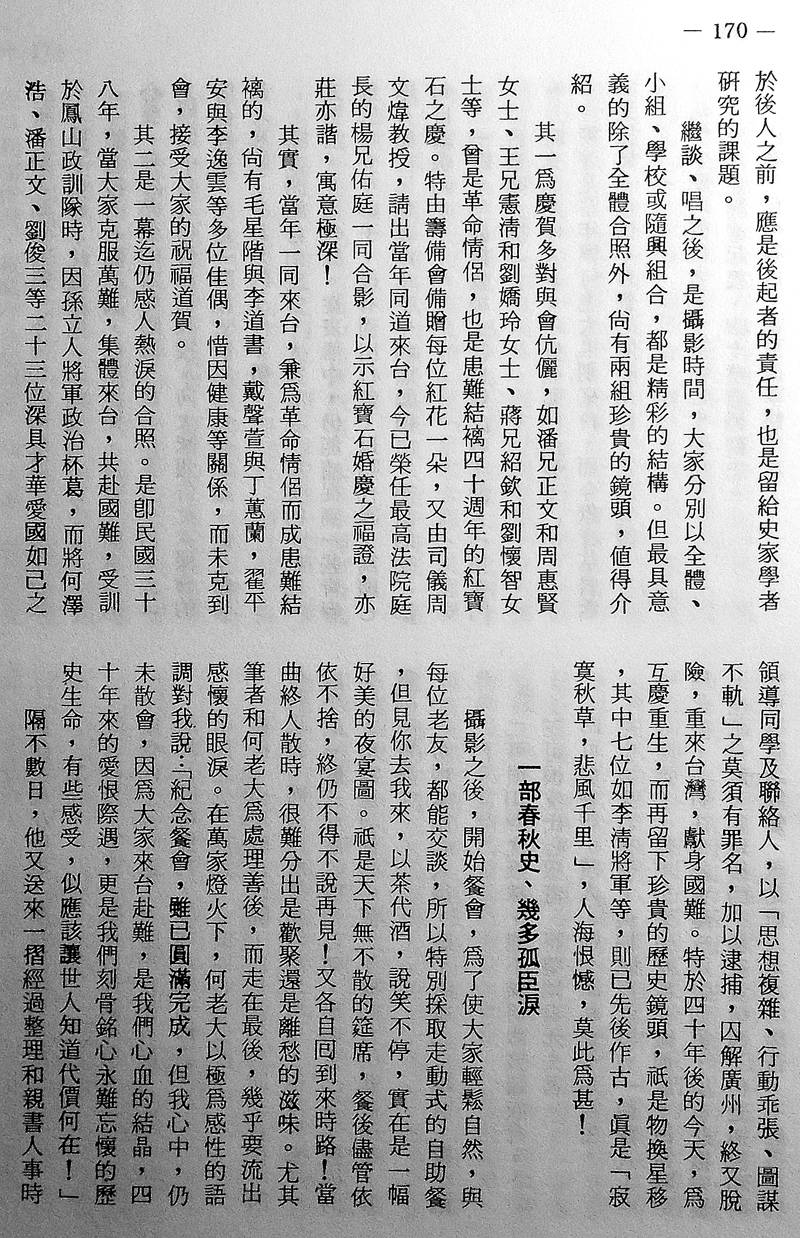 — 170 —
於後人之前，應是後起者的責任，也是留給史家學者
研究的課題。
繼談、唱之後，是攝影時間，大家分別以全體、
小組、學校或隨興組合，都是精彩的結構。但最具意
義的除了全體合照外，尚有兩組珍貴的鏡頭，值得介
紹。
其一為慶賀多對與會伉儷，如潘兄正文和周惠賢
女士、王兄憲清和劉嬌玲女士、蔣兄紹欽和劉懷智女
士等，曾是革命情侶，也是患難結褵四十週年的紅寶
石之慶。特由籌備會備贈每位紅花一朵，又由司儀周
文煒教授，請出當年同道來台，今已榮任最高法院庭
長的楊兄佑庭一同合影，以示紅寶石婚慶之福證，亦
莊亦諧，寓意極深！
其實，當年一同來台，兼為革命情侶而成患難結
褵的，尚有毛星階與李道書，戴聲萱與丁蕙蘭，翟平
安與李逸雲等多位佳偶，惜因健康等關係，而未克到
會，接受大家的祝福道賀。
其二是一幕迄仍感人熱淚的合照。是卽民國三十
八年，當大家克服萬難，集體來台，共赴國難，受訓
於鳳山政訓隊時，因孫立人將軍政治杯葛，而將何澤
浩、潘正文、劉俊三等二十三位深具才華愛國如己之
領導同學及聯絡人，以「思想複雜、行動乖張、圖謀
不軌」之莫須有罪名，加以逮捕，囚解廣州，終又脫
險，重來台灣，獻身國難。特於四十年後的今天，為
互慶重生，而再留下珍貴的歷史鏡頭，祇是物換星移
，其中七位如李清將軍等，則已先後作古，眞是「寂
寞秋草，悲風千里」，人海恨憾，莫此為甚！
一部春秋史、幾多孤臣淚
攝影之後，開始餐會，為了使大家輕鬆自然，與
每位老友，都能交談，所以特別採取走動式的自助餐
，但見你去我來，以茶代酒，說笑不停，實在是一幅
好美的夜宴圖。祇是天下無不散的筵席，餐後儘管依
依不捨，終仍不得不說再見！又各自回到來時路！當
曲終人散時，很難分出是歡聚還是離愁的滋味。尤其
筆者和何老大為處理善後，而走在最後，幾乎要流出
感懷的眼淚。在萬家燈火下，何老大以極為感性的語
調對我說：「紀念餐會，雖已圓滿完成，但我心中，仍
未散會，因為大家來台赴難，是我們心血的結晶，四
十年來的愛恨際遇，更是我們刻骨銘心永難忘懷的歷
史生命，有些感受，似應該讓世人知道代價何在！」
隔不數日，他又送來一摺經過整理和親書人事時